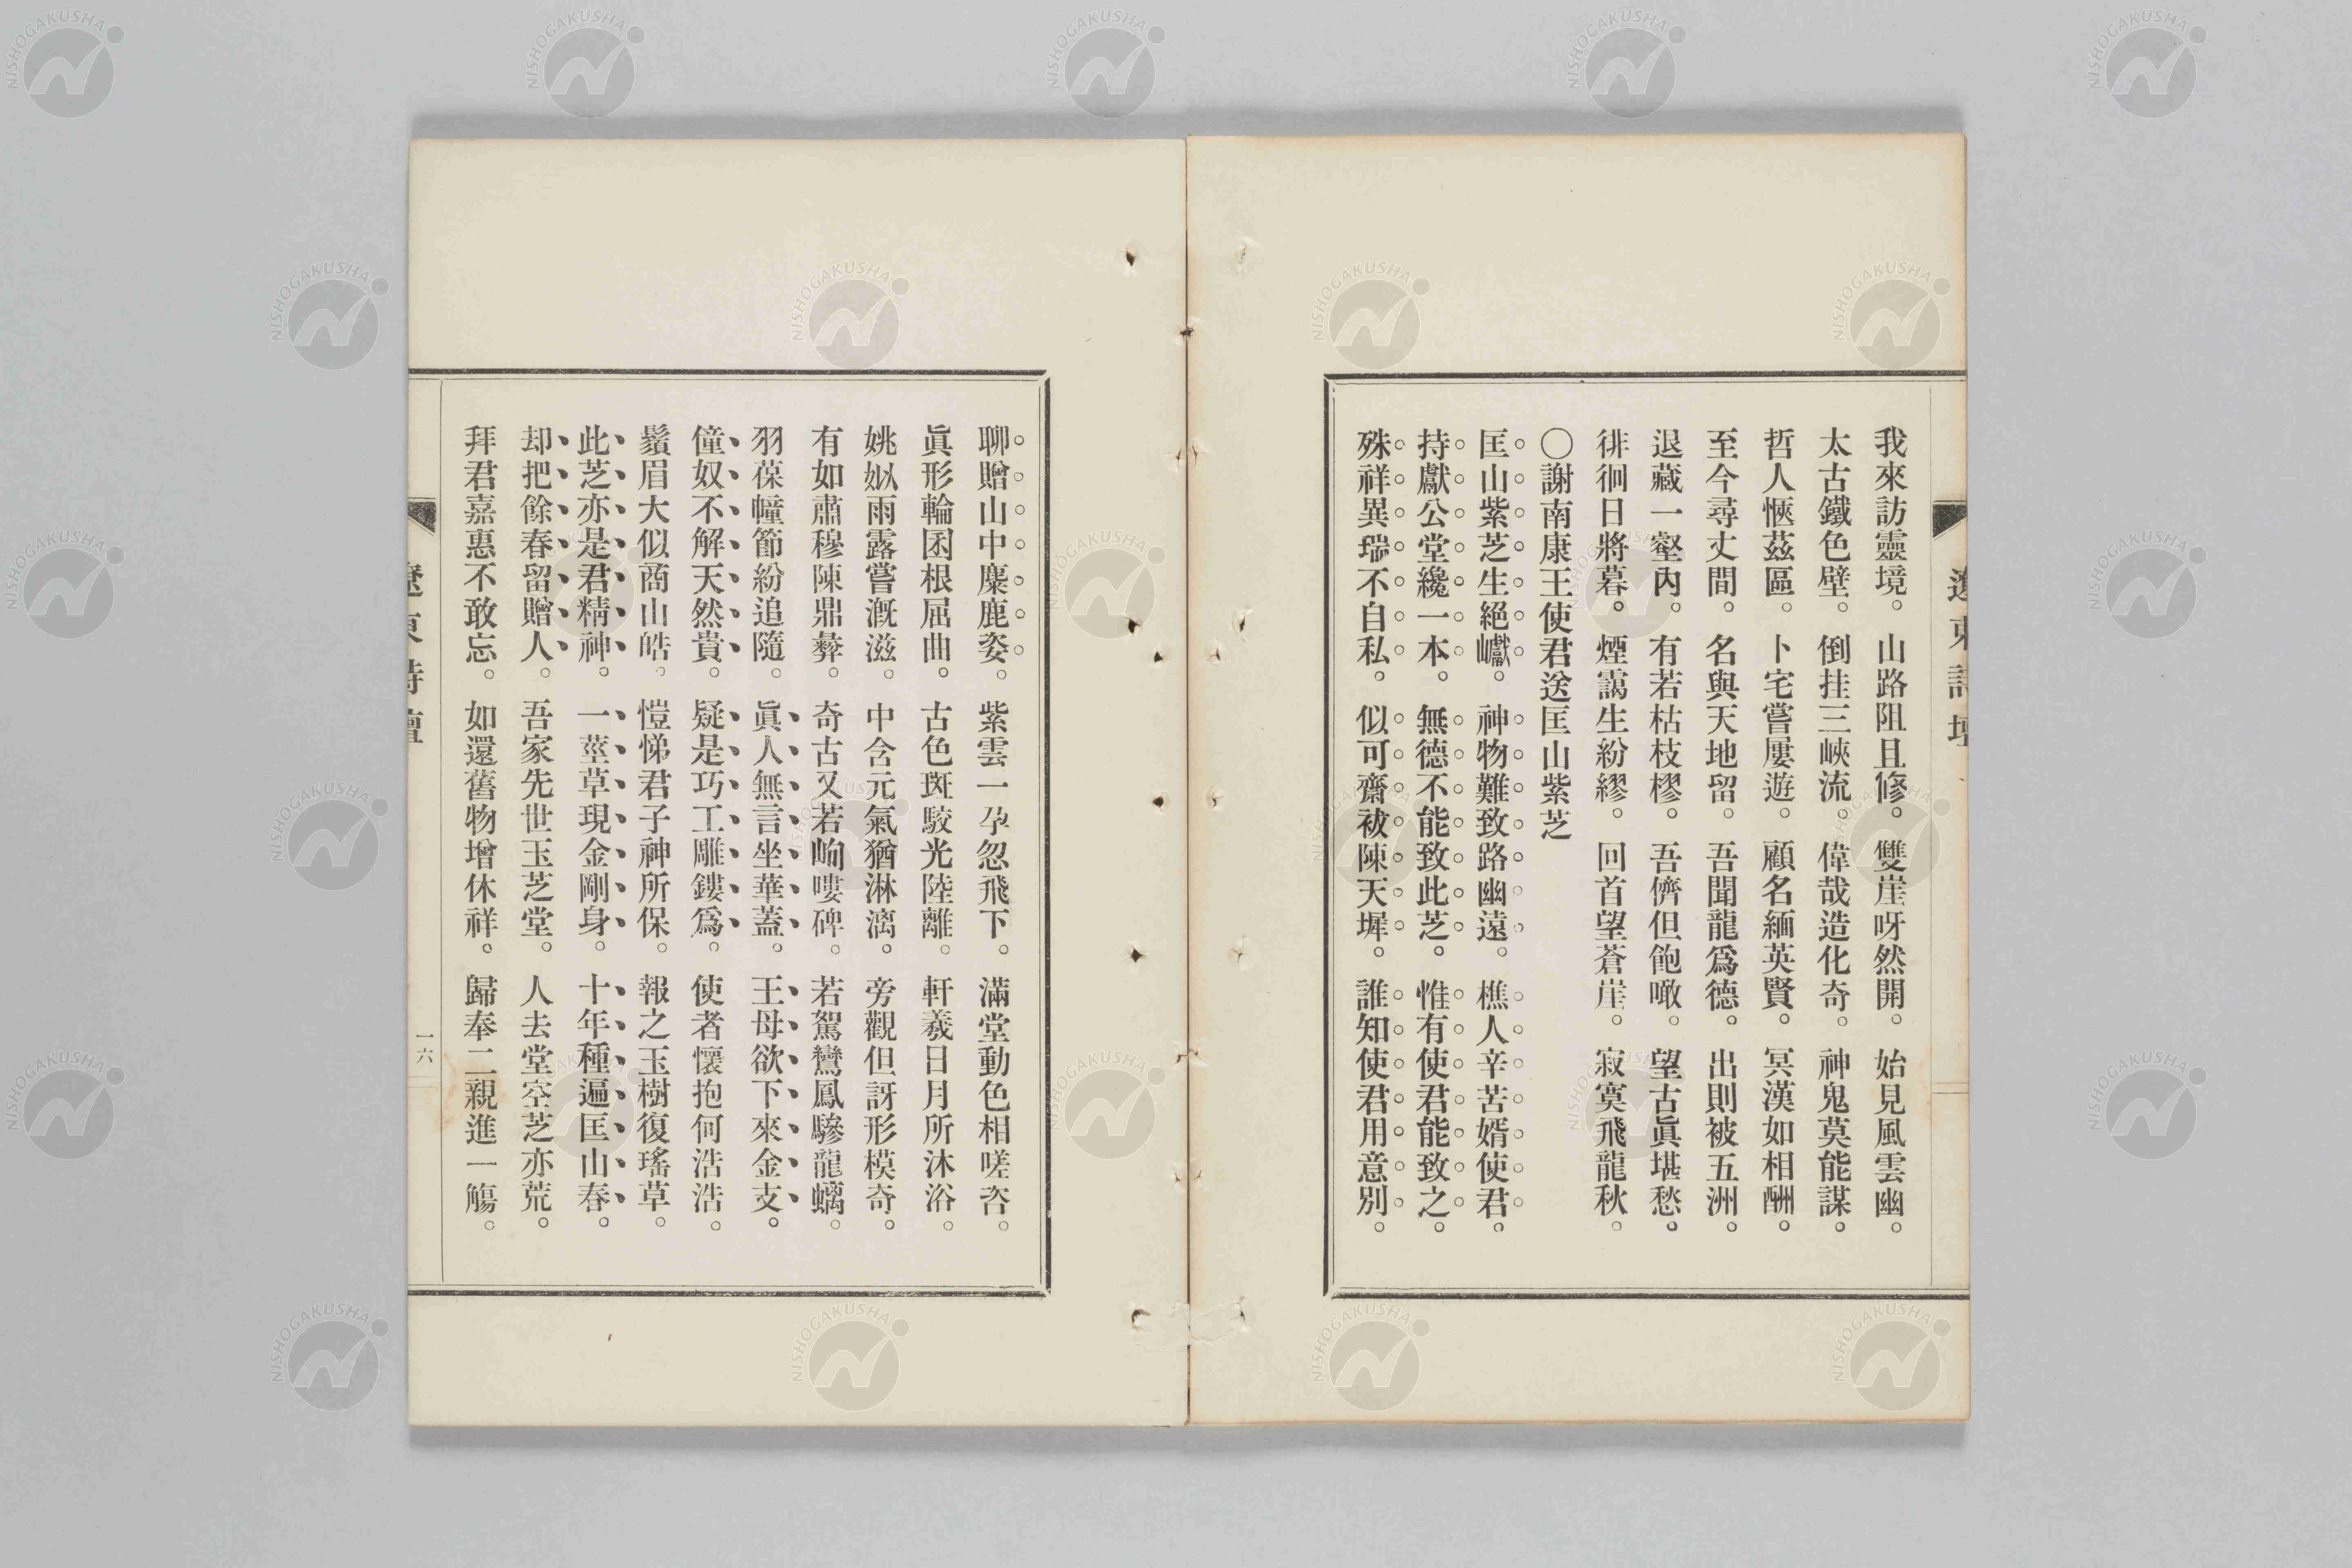 遼東詩壇
我來訪靈境。山路阻且修。雙崖呀然開。始見風雲幽。
太古鐵色壁。倒挂三峽流。偉哉造化奇。神鬼莫能謀。
哲人愜茲區。卜宅嘗屢遊。顧名緬英賢。冥漠如相酬。
至今尋丈間。名與天地留。吾聞龍爲德。出則被五洲。
退藏一壑內。有若枯枝樛。吾儕但飽噉。望古眞堪愁。
徘徊日將暮。煙靄生紛繆。回首望蒼崖。寂寞飛龍秋。
〇謝南康王使君送匡山紫芝
匡山紫芝生絕巘。神物難致路幽遠。樵人辛苦婿使君。
持獻公堂纔一本。無德不能致此芝。惟有使君能致之。
殊祥異瑞不自私。似可齋祓陳天墀。誰知使君用意別。
聊贈山中麋鹿姿。紫雲一孕忽飛下。滿堂動色相嗟咨。
眞形輪囷根屈曲。古色斑駮光陸離。軒羲日月所沐浴。
姚姒雨露嘗漑滋。中含元氣猶淋漓。旁觀但訝形模奇。
有如肅穆陳鼎彝。奇古又若岣嶁碑。若駕鸞鳳驂龍螭。
羽葆幢節紛追隨。眞人無言坐華蓋。王母欲下來金支。
僮奴不解天然貴。疑是巧工雕鏤爲。使者懷抱何浩浩。
鬚眉大似商山皓。愷悌君子神所保。報之玉樹復瑤草。
此芝亦是君精神。一莖草現金剛身。十年種遍匡山春。
却把餘春留贈人。吾家先世玉芝堂。人去堂空芝亦荒。
拜君嘉惠不敢忘。如還舊物增休祥。歸奉二親進一觴。
遼東詩壇
一六
NISHOGAKUSHA